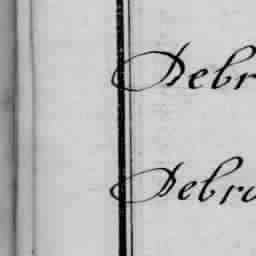 Debr
Debra